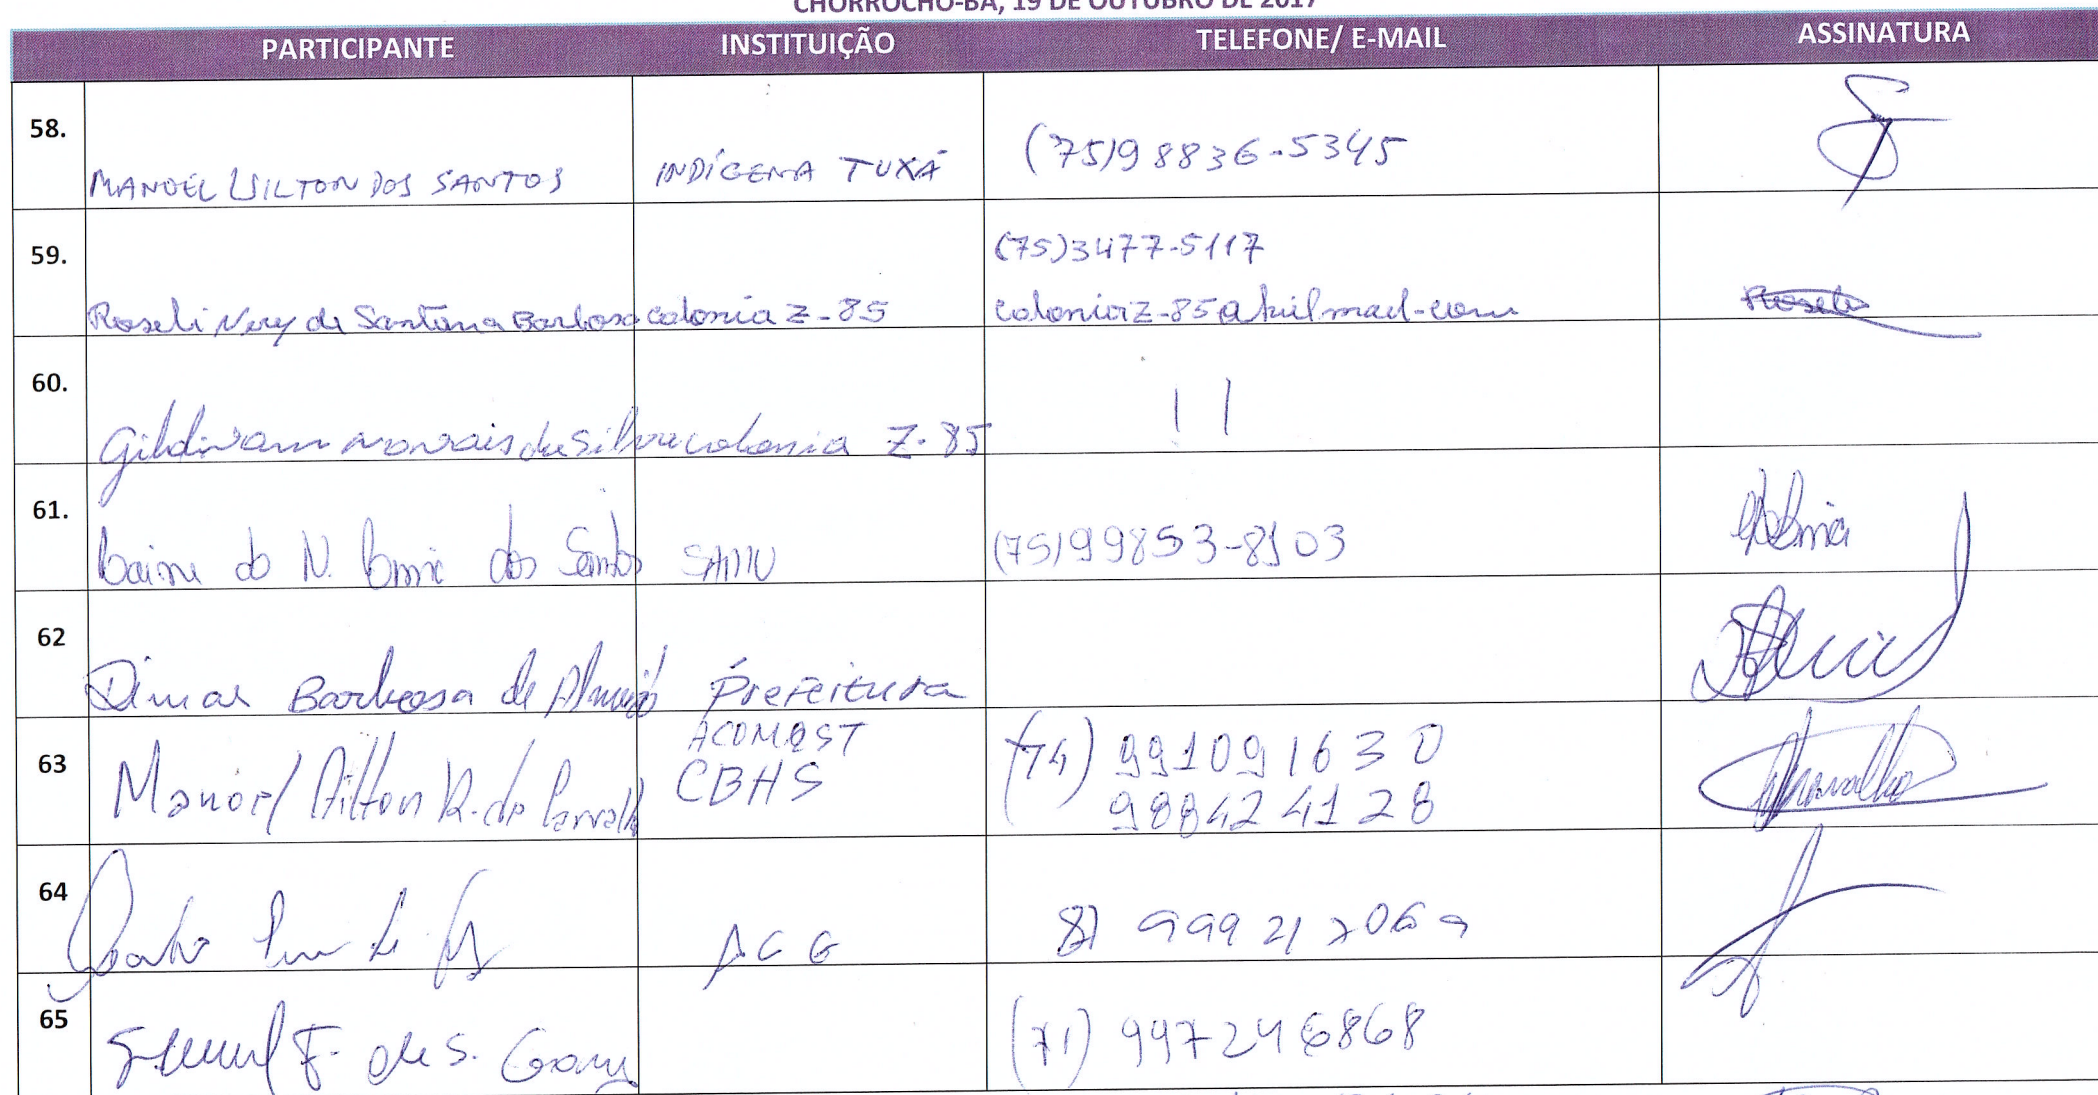 CHORROCHÓ-BA, 19 DE OUTUBRO DE 2017
PARTICIPANTE INSTITUIÇÃO TELEFONE/ E-MAIL ASSINATURA
58. MANOEL WILTON DOS SANTOS INDÍGENA TUXÁ (75)98836-5345
59. Roseli Nery de Santana Barbosa colonia Z-85 (75)3477-5117
Roseli
60. Gildivam morais da Silva colonia Z-85 ! |
61. do N. dos Santos SAMU (75)99853-8103
62 Dimas Barbosa de Almeida Prefeitura
63 Manoel Ailton R. de Carvalho ACOMQST (74) 991091630
CBHS 988424128
64 de 81 99921 7069
65 F. de S. (71) 997246868